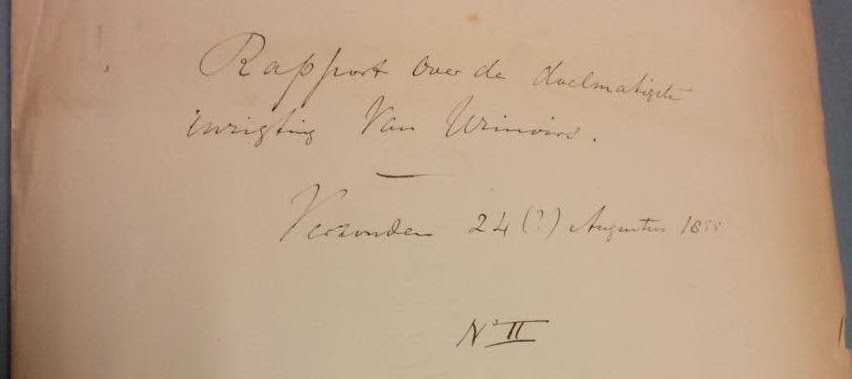 Rapport over de doelmatigste
inrigting van Urinoirs.
Verzonden 24 (?) Augustus 1855
No II